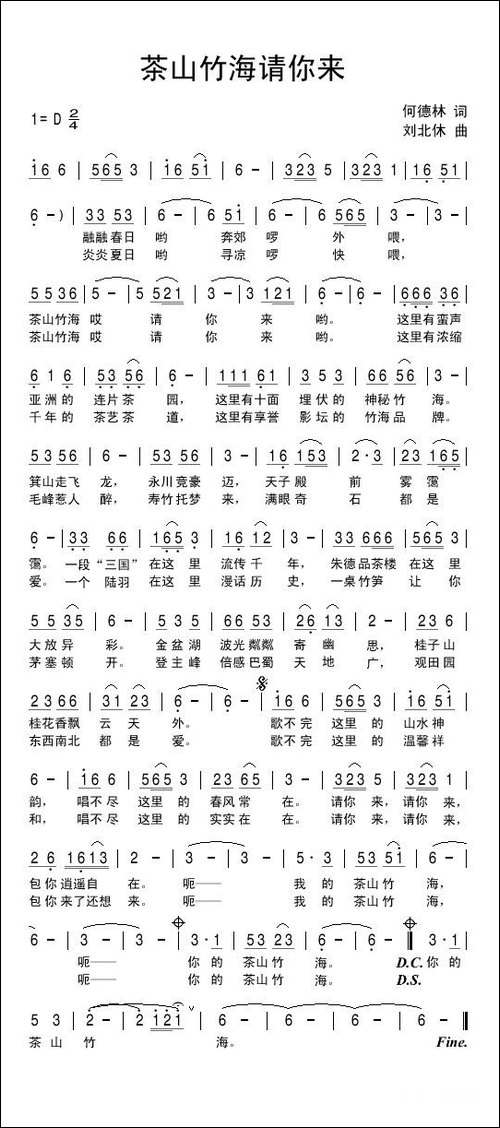 茶山竹海请你来
何德林 词
1= D 2/4
刘北休 曲
1 6 6 | 5 6 5 3 | 1 6 5 1 | 6 - | 3 2 3 5 | 3 2 3 1 | 1 6 5 1 |
6 - ) | 3 3 5 3 | 6 - | 6 5 1 | 6 - | 6 5 6 5 | 3 - | 3 - |
融融春日 哟 奔郊 啰 外 喂,
炎炎夏日 哟 寻凉 啰 快 喂,
5 5 3 6 | 5 - | 5 5 2 1 | 3 - | 3 1 2 1 | 6 - | 6 - | 6 6 6 3 6 |
茶山竹海 哎 请 你 来 哟。 这里有蛮声
茶山竹海 哎 请 你 来 哟。 这里有浓缩
6 1 6 | 5 3 5 6 | 6 - | 1 1 1 6 1 | 3 5 3 | 6 6 5 6 | 3 - |
亚洲的 连片茶 园, 这里有十面 埋伏的 神秘竹 海。
千年的 茶艺茶 道, 这里有享誉 影坛的 竹海品 牌。
5 5 3 5 | 6 - | 5 3 5 6 | 3 - | 1 2 1 0 3 5 3 | 2 · 3 | 2 3 1 6 5 |
箕山走飞 龙, 永川竞豪 迈, 天子殿 前 雾霭
毛峰惹人 醉, 寿竹托梦 来, 满眼奇 石 都是
6 - | 3 3 6 6 | 1 6 5 6 | 1 6 1 2 | 3 - | 3 3 6 6 6 | 5 6 5 3 |
霭。 一段“三国” 在这里 流传千 年, 朱德品茶楼 在这里
爱。 一个 陆羽 在这里 漫话历 史, 一桌竹笋 让 你
5 5 3 5 | 6 - | 6 5 6 | 5 3 5 3 | 2 6 1 3 | 2 - | 2 3 6 |
大放异 彩。 金盆湖 波光粼粼 寄幽 思, 桂子山
茅塞顿 开。 登主峰 倍感巴蜀 天地 广, 观田园
2 3 6 6 | 3 1 2 3 | 6 - | 6 - | 1 6 6 | 5 6 5 3 | 3 2 3 5 |
桂花香飘 云天 外。 歌不完 这里的 山水神
东西南北 都是 爱。 歌不完 这里的 温馨祥
6 - | 1 6 6 | 5 6 5 3 | 2 3 6 5 | 3 - | 3 2 3 5 | 3 2 3 1 |
韵, 唱不尽 这里的 春风常 在。 请你来, 请你来,
和, 唱不尽 这里的 实实在 在。 请你来, 请你来,
2 6 1 6 1 3 | 2 - | 3 - | 3 - | 5 · 3 | 5 3 5 1 | 6 - |
包你逍遥自 在。 呃—— 我的 茶山竹 海,
包你来了还想 来。 呃—— 我的 茶山竹 海,
6 - | 3 - | 3 - | 3 · 1 | 5 3 2 3 | 6 - | 6 - | 3 · 1 |
呃—— 你的 茶山竹 海。 D.C. 你的
呃—— 你的 茶山竹 海。 D.S.
5 3 | 2 - | 2 1 2 1 | 6 - | 6 - | 6 - | 6 - |
茶山 竹 海。 Fine.